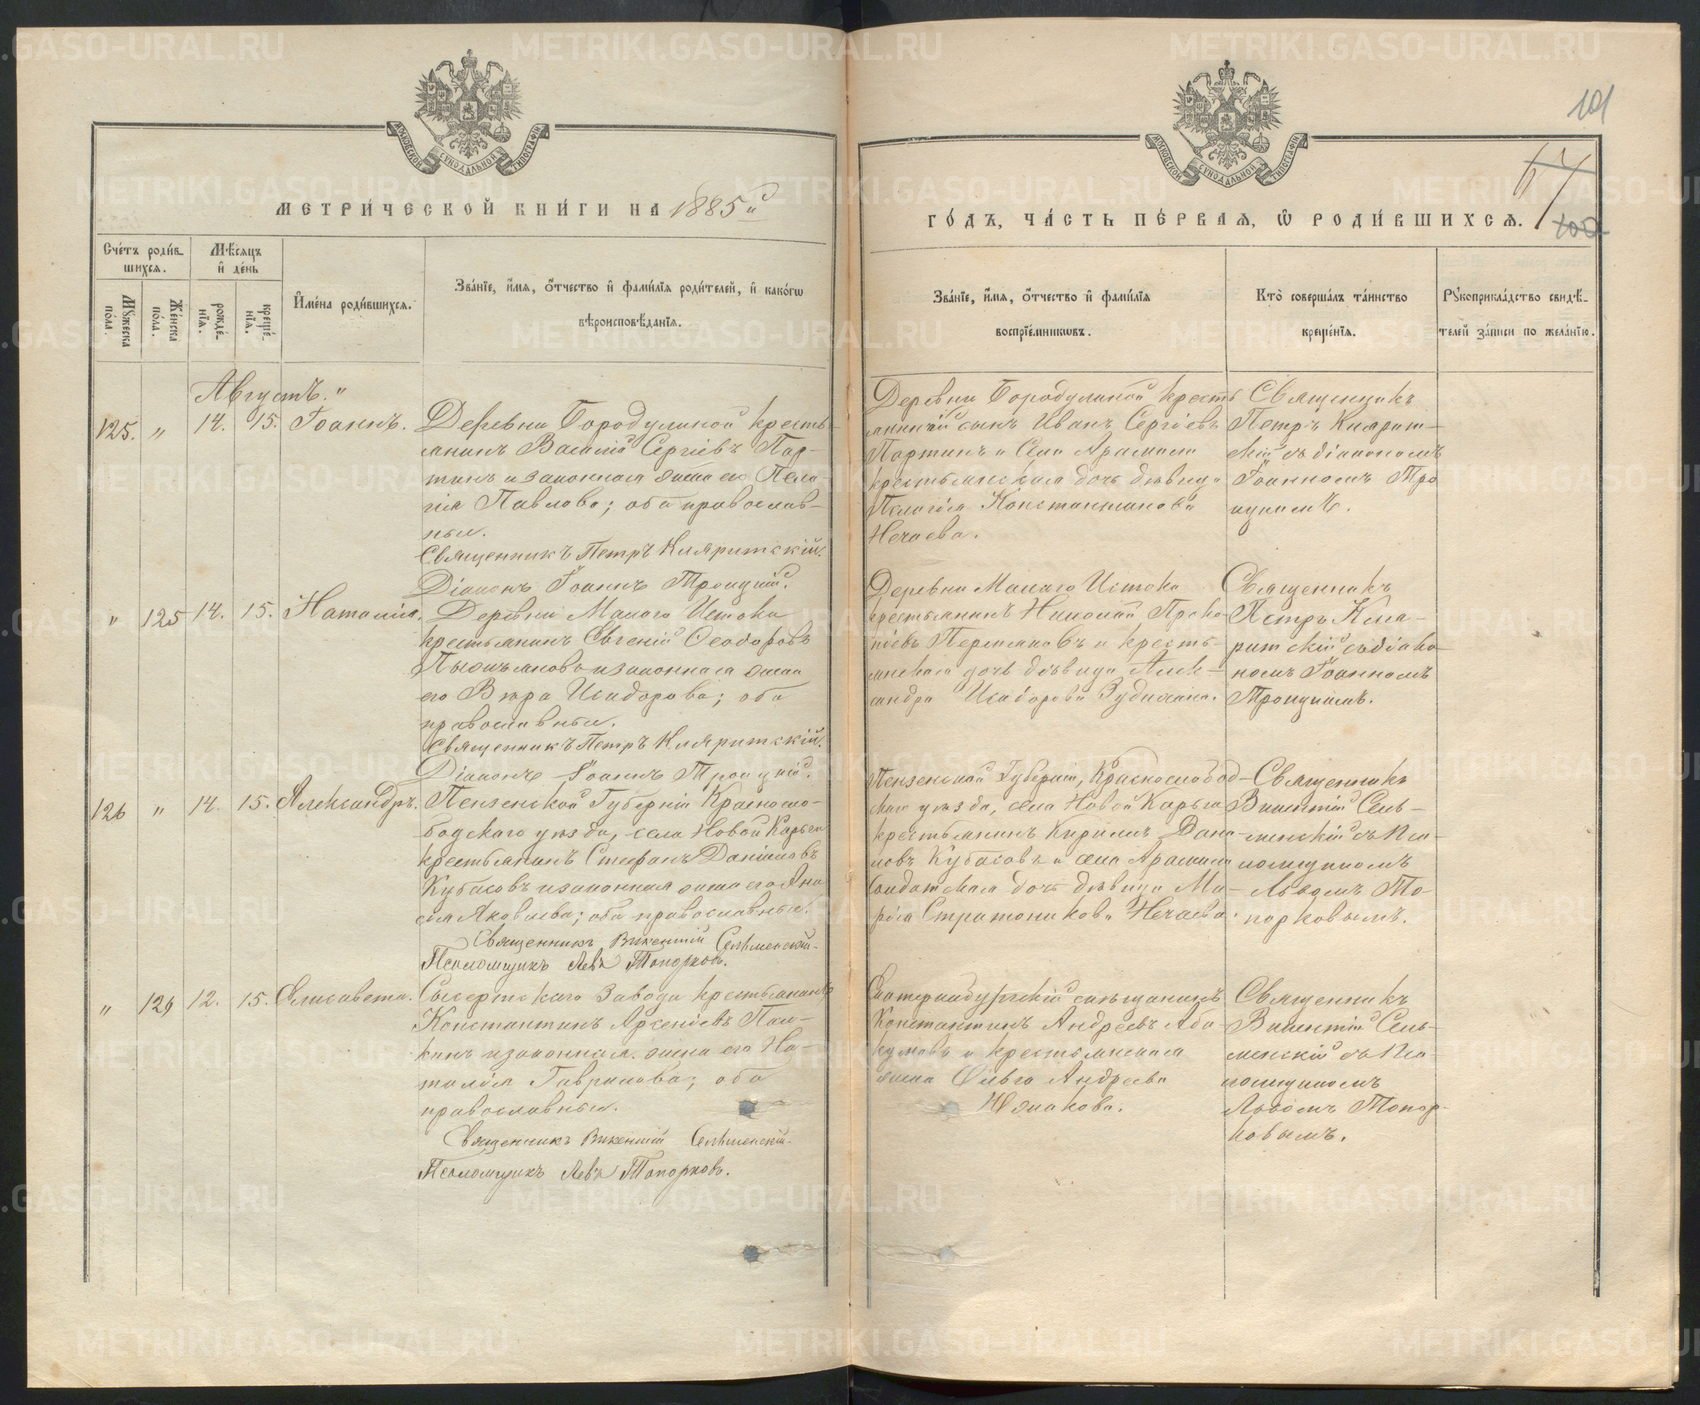 101
67
100
МОСКОВСКОЙ СѴНОДАЛЬНОЙ ТИПОГРАФІИ
МОСКОВСКОЙ СѴНОДАЛЬНОЙ ТИПОГРАФІИ
МЕТРИ́ЧЕСКОЙ КНИ́ГИ НА 1885й
ГО́ДЪ, ЧА́СТЬ ПЕ́РВАЯ, Ѡ҆ РОДИ́ВШИХСѦ.
Сче́тъ роди́вшихсѧ.
Мꙋ́жеска по́ла.
Же́нска по́ла.
Мѣ́сѧцъ и҆ де́нь
рожде́нїѧ.
креще́нїѧ.
И҆мена̀ роди́вшихсѧ.
Зва́нїе, и҆́мѧ, ѻ҆́тчество и҆ фами́лїѧ роди́телей, и҆ како́гѡ
вѣроисповѣ́данїѧ.
Зва́нїе, и҆́мѧ, ѻ҆́тчество и҆ фами́лїѧ
воспрїе́мникѡвъ.
Кто̀ соверша́лъ та́инство
креще́нїѧ.
Рꙋкоприкла́дство свидѣ́-
телей за́писи по жела́нїю.
Августъ.
125. „ 14. 15. Іоаннъ.
Деревни Бородулиной кресть-
янинъ Василій Сергіевъ Пар-
тинъ и законная жена его Пела-
гія Павлова; оба православ-
ные.
Священникъ Петръ Кипритскій.
Діаконъ Іоаннъ Троицкій.
Деревни Бородулиной кресть
янскій сынъ Иванъ Сергіевъ
Партинъ и Села Арамили
крестьянская дочь дѣвица
Пелагія Константинова
Нечаева.
Священникъ
Петръ Киприт-
скій съ діакономъ
Іоанномъ Тро
ицкимъ.
„ 125 14. 15. Наталія.
Деревни Малаго Истока
крестьянинъ Евгеній Ѳеодоровъ
и законная жена
его Вѣра Исидорова; оба
православные.
Священникъ Петръ Кипритскій.
Діаконъ Іоаннъ Троицкій.
Деревни Малаго Истока
крестьянинъ Николай Проко-
піевъ Пермяковъ и кресть-
янская дочь дѣвица Алек-
сандра Исидорова
Священникъ
Петръ Кип-
ритскій съ діако-
номъ Іоанномъ
Троицкимъ.
126 „ 14. 15. Александръ.
Пензенской Губерніи Красносло-
бодскаго уѣзда, села Новой Карьги
крестьянинъ Стефанъ Даніиловъ
Кубасовъ и законная жена его Ана
сія Яковлева; оба православные.
Священникъ Викентій Сельменскій.
Псаломщикъ Левъ Топорковъ.
Пензенской Губерніи, Краснослобод-
скаго уѣзда, села Новой Карьги
крестьянинъ Кириллъ Дани-
ловъ Кубасовъ и села Арамили
солдатская дочь дѣвица Ма-
рія Стратоникова Нечаева.
Священникъ
Викентій Сель-
менскій съ Пса-
ломщикомъ
Львомъ То-
порковымъ.
„ 126 12. 15. Елисавета.
Сысертскаго Завода крестьянинъ
Константинъ Арсеніевъ Пал-
кинъ и законная жена его На-
талія Гаврилова; оба
православные.
Священникъ Викентій Сельменскій.
Псаломщикъ Левъ Топорковъ.
Екатеринбургскій мѣщанинъ
Константинъ Андреевъ Аба-
кумовъ и крестьянская
жена Ольга Андреева
Южакова.
Священникъ
Викентій Сель-
менскій съ Пса-
ломщикомъ
Львомъ Топор-
ковымъ.
METRIKI.GASO-URAL.RU